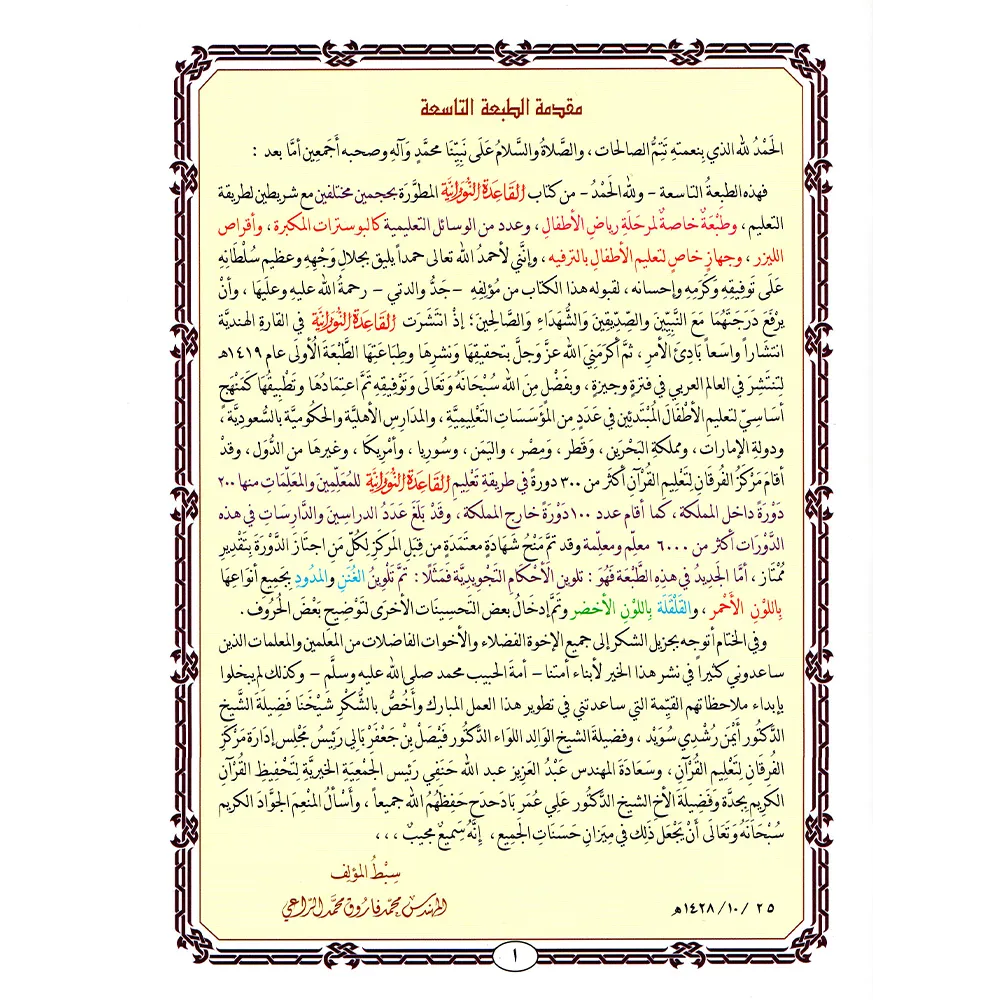 مقدمة الطبعة التاسعة
الحَمْدُ لله الذي بِنعمتهِ تَتِمُّ الصالحات ، والصَّلاةُ والسَّلامُ عَلَى نَبِيِّنَا محمَّدٍ وَآلهِ وصحبه أجمَعِين أمَّا بعد :
فهذه الطبعةُ التاسعة – ولله الحَمْدُ – من كتاب القَاعدَة النُّورَانيَّة المطوَّرَة بحجمين مختلفين مع شريطين لطريقة
التعليم ، وطَبْعَةٌ خاصةٌ لمرحلَةِ رياضِ الأطفالِ ، وعدد من الوسائل التعليمية كالبوسترات المكبرة ، وأقراص
الليزر ، وجهازٍ خاصٍ لتعليم الأطفالِ بالترفيه ، وإنَّني لأحمدُ الله تعالى حمداً يليق بجلالِ وَجْهِهِ وعظيم سُلْطَانِهِ
عَلَى تَوفِيقِهِ وَكَرَمِهِ وإحسانه ، لقبوله هذا الكتاب من مُؤلِفِهِ –جَدُّ والدتي – رحمةُ الله عليهِ وعليهَا ، وأنْ
يرْفَعَ دَرَجَتَهُمَا مَعَ النَّبيِّينَ والصِّدِّيقِينَ والشُّهَدَاءِ وَالصَّالحِينَ؛ إذْ انتَشَرَت القَاعدَة النُّورَانيَّة في القارةِ الهنديَّة
انتشاراً واسَعاً بَادِئَ الأمرِ ، ثمَّ أكرَمَنِيَ الله عزَّ وَجلَّ بتحقيقِهَا وَنشرِها وطِبَاعَتِهَا الطَّبْعَةَ الأُولَى عام ١٤١٩هـ
لِتنتَشِرَ في العالم العربي في فترةٍ وجيزةٍ ، وبفَضْلٍ مِنَ الله سُبْحَانَهُ وَتَعَالَى وَتَوْفِيقِهِ تَمَّ اعتِمَادُهَا وَتطْبِيقُهَا كَمَنْهَجٍ
أسَاسِيّ لتعليم الأطْفَالِ المُبْتَدئِين في عَدَدٍ مِنَ المُؤَسَسَاتِ التَّعْلِيمِيَّةِ ، والمَدَارِسِ الأهليَّةِ والحُكُومِيَّة بالسُّعودِيَّةِ ،
ودولةِ الإمارَات ، ومملكةِ البَحْرَين ، وَقَطَر ، ومِصْر ، واليَمَن ، وسُورِيا ، وأَمْرِيكَا ، وغيرهَا من الدُّوَل ، وقدْ
أقَامَ مَرْكَزُ الفُرقَانِ لتَعْليمِ القُرْآنِ أكثَر من ٣٠٠ دورةً في طريقةِ تَعْلِيم القَاعدَة النُّورَانيَّة للمُعَلِّمِينَ والمُعَلِّمَاتِ منها ٢٠٠
دَوْرَةً داخل المملكة ، كمَا أقام عدد ١٠٠ دَوْرَةً خارج المملكة ، وقَدْ بَلَغَ عَدَدُ الدراسينَ والدَّارِسَاتِ في هذه
الدَّوْرَات أكثر من ٦٠٠٠ معلِّم ومعلِّمة وقد تمَّ مَنْحُ شَهَادَةٍ معتمَدَةٍ من قِبَلِ المركزِ لِكلِّ مَن اجتَازَ الدَّوْرَةَ بتَقْدِيرِ
مُمْتَاز ، أمَّا الجَدِيدُ في هذِهِ الطَّبْعَة فَهُوَ : تلوينُ الأحْكَامِ التَّجْوِيديَّةِ فَمَثَلًا : تمَّ تَلْوِينُ الغُنَنِ والمدُودِ بجَميعِ أنوَاعِهَا
باللونِ الأَحْمر ، والقَلْقَلَة باللونِ الأخضر وتمَّ إدخَالُ بعض التَّحسِينَات الأخرى لتَوْضِيحِ بَعْضِ الحُرُوف .
وفي الختام أتوجه بجزيل الشكر إلى جميع الإخوة الفضلاء والأخوات الفاضلات من المعلمين والمعلمات الذين
ساعدوني كثيراً في نشر هذا الخير لأبناء أمتنا – أمةَ الحبيب محمد صلى الله عليه وسلَّم – وكذلك لم يبخلوا
بإبداء ملاحظاتهم القيِّمة التي ساعدتني في تطوير هذا العمل المبارك وأَخُصُّ بالشُّكْرِ شَيْخَنَا فَضِيلَةَ الشَّيخِ
الدُّكْتُور أيْمَن رُشْدِي سُوَيْد ، وفضيلةَ الشيخِ الوَالِدِ اللواء الدُّكْتُور فَيْصَل بن جَعْفَر بَالي رئيسُ مجْلِس إدَارَة مَرْكَزِ
الفُرقَانِ لتَعْليمِ القُرْآنِ ، وسَعَادَةَ المهندس عَبْدُ العَزِيز عبد الله حَنَفي رئيس الجَمْعِية الخيريَّة لِتَحْفِيظِ القُرْآنِ
الكريم بجِدَّة وَفَضِيلَةَ الأخ الشيخ الدُّكْتور عَلي عُمَر بَادحدَح حَفظَهُمُ الله جميعاً ، وأَسْأَلُ المُنْعِمَ الجَوَادَ الكريم
سُبْحَانَهُ وَتَعَالَى أَنْ يَجْعَل ذَلِكَ في مِيزانِ حَسَنَاتِ الجَمِيعِ ، إنَّهُ سَمِيعٌ مُجيبٌ ،،،
سِبْطُ المؤلِف
المهندس محمد فاروق محمد الراعي
٢٥ /١٠ /١٤٢٨هـ
١